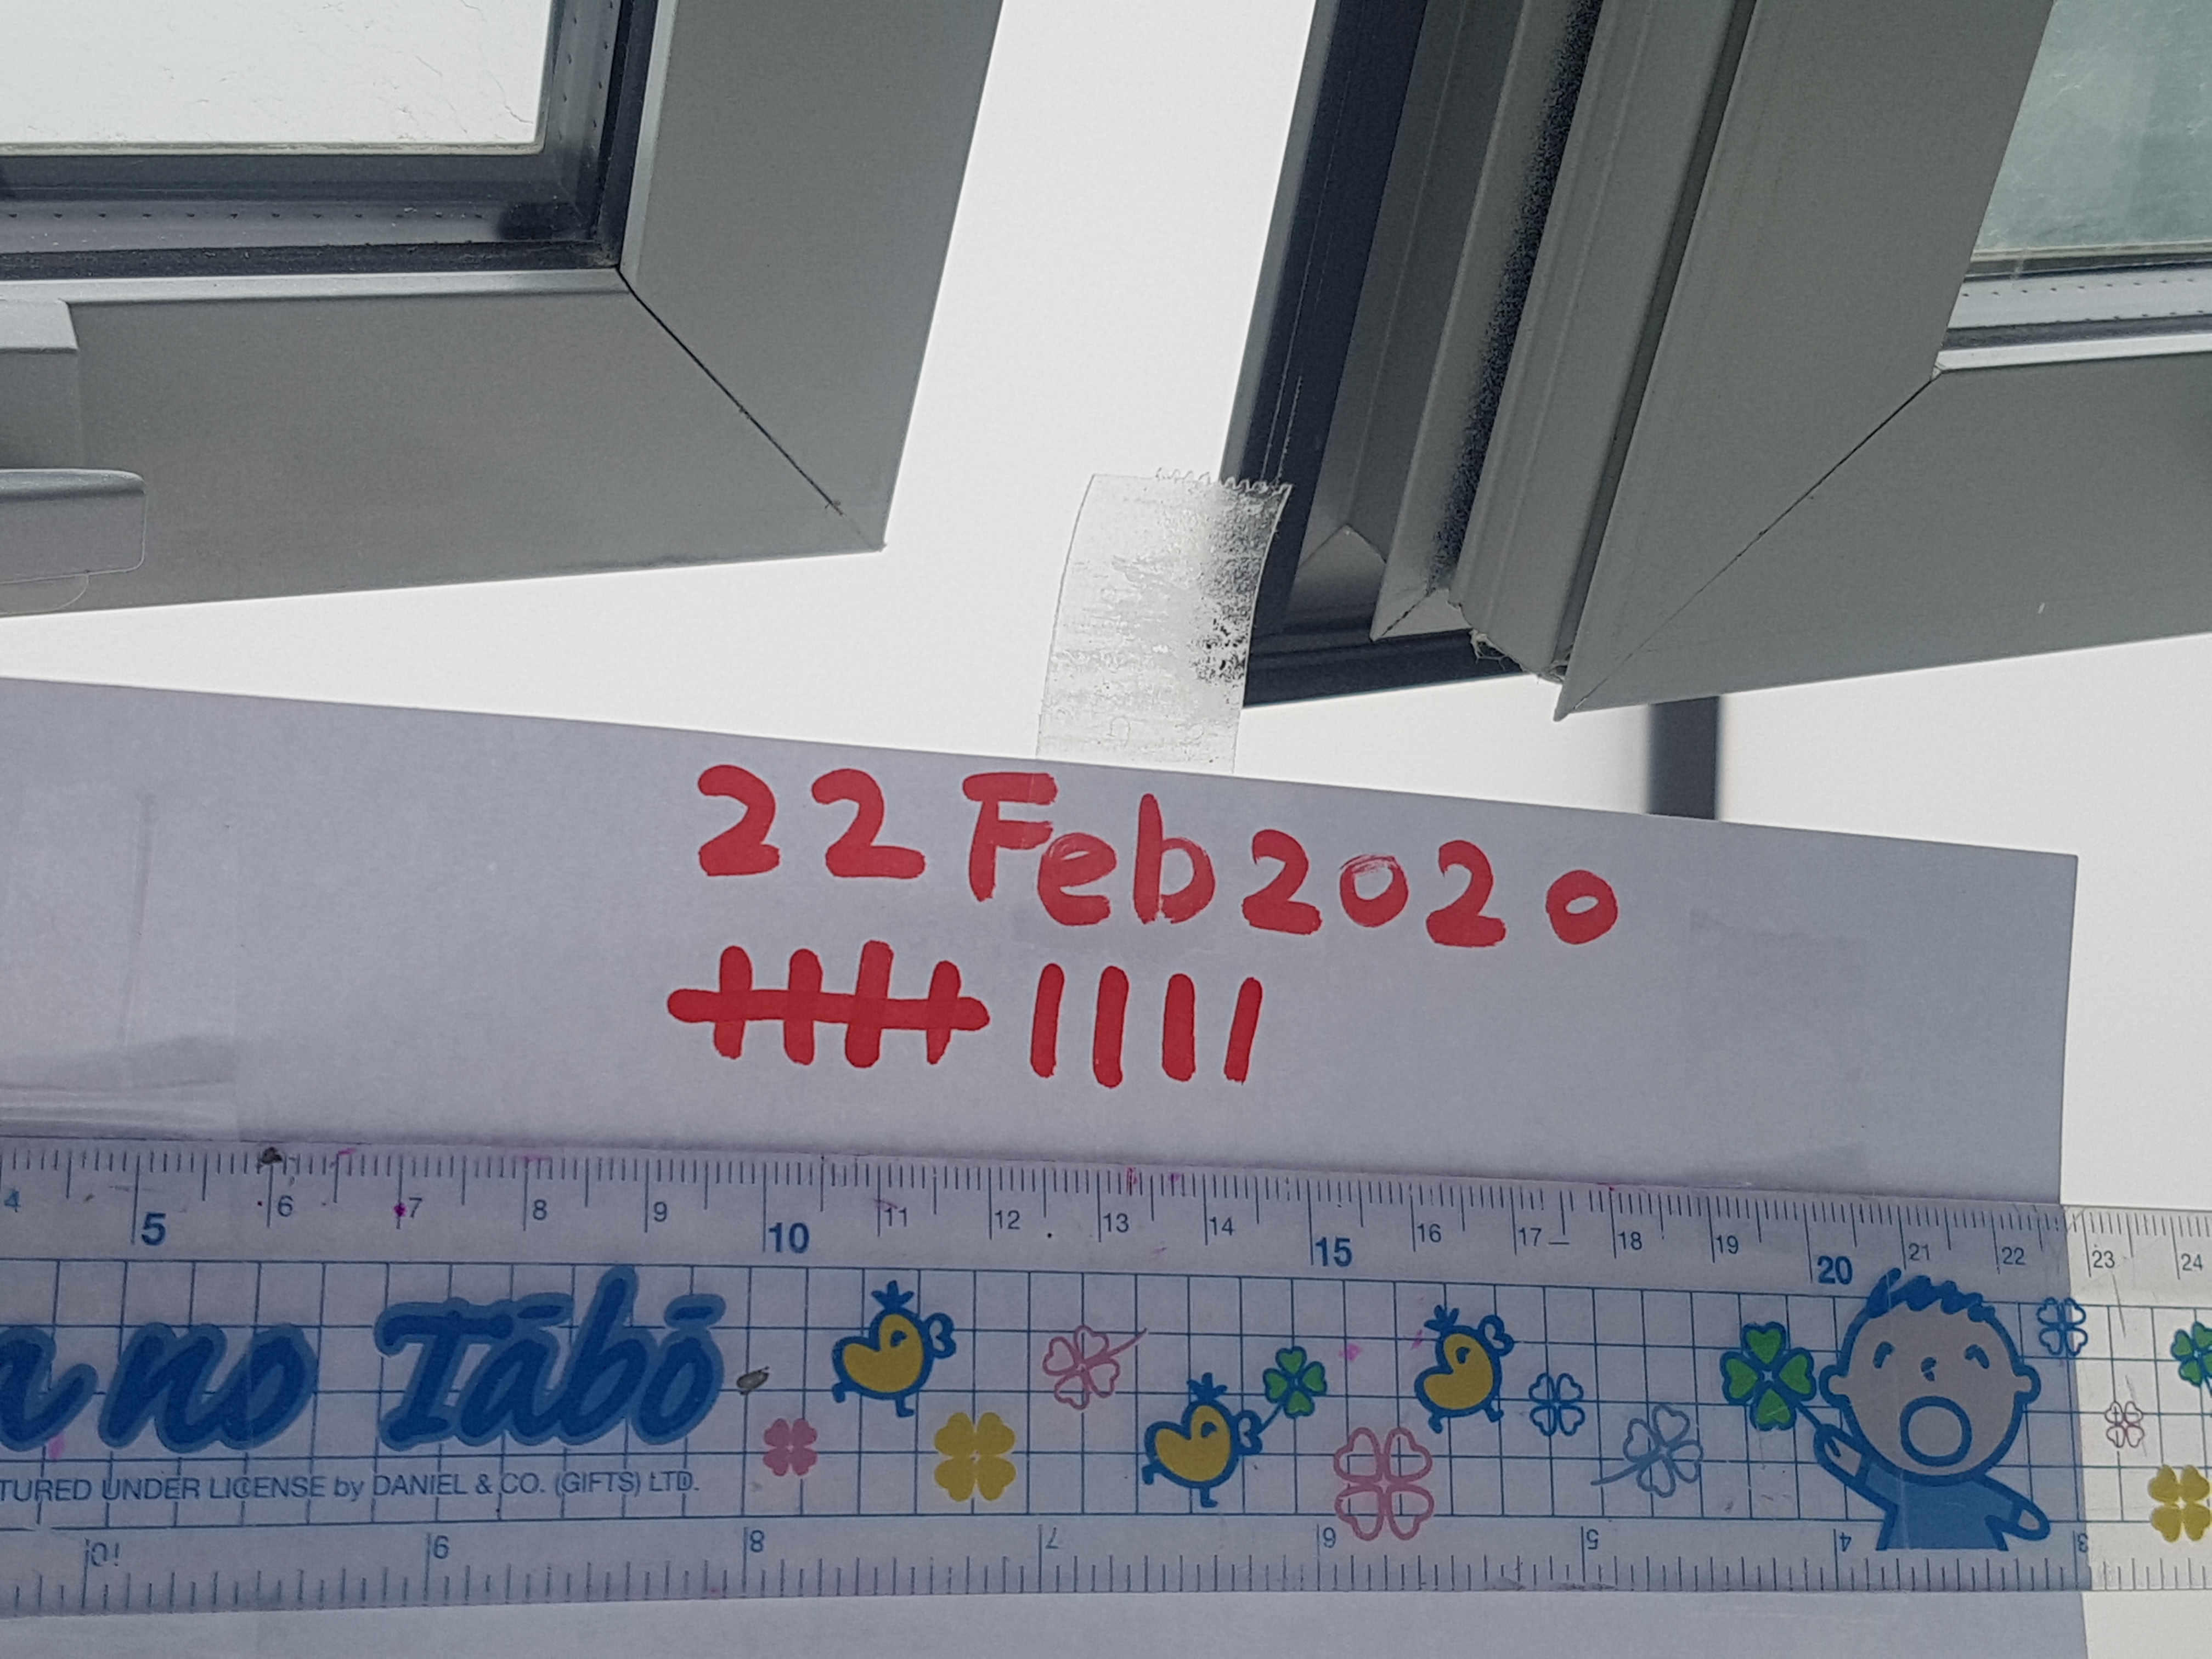 22 Feb 2020
4 5 6 7 8 9 10 11 12 13 14 15 16 17 18 19 20 21 22 23 24
no Tābō
TURED UNDER LICENSE by DANIEL & CO. (GIFTS) LTD.
10 9 8 7 6 5 4 3